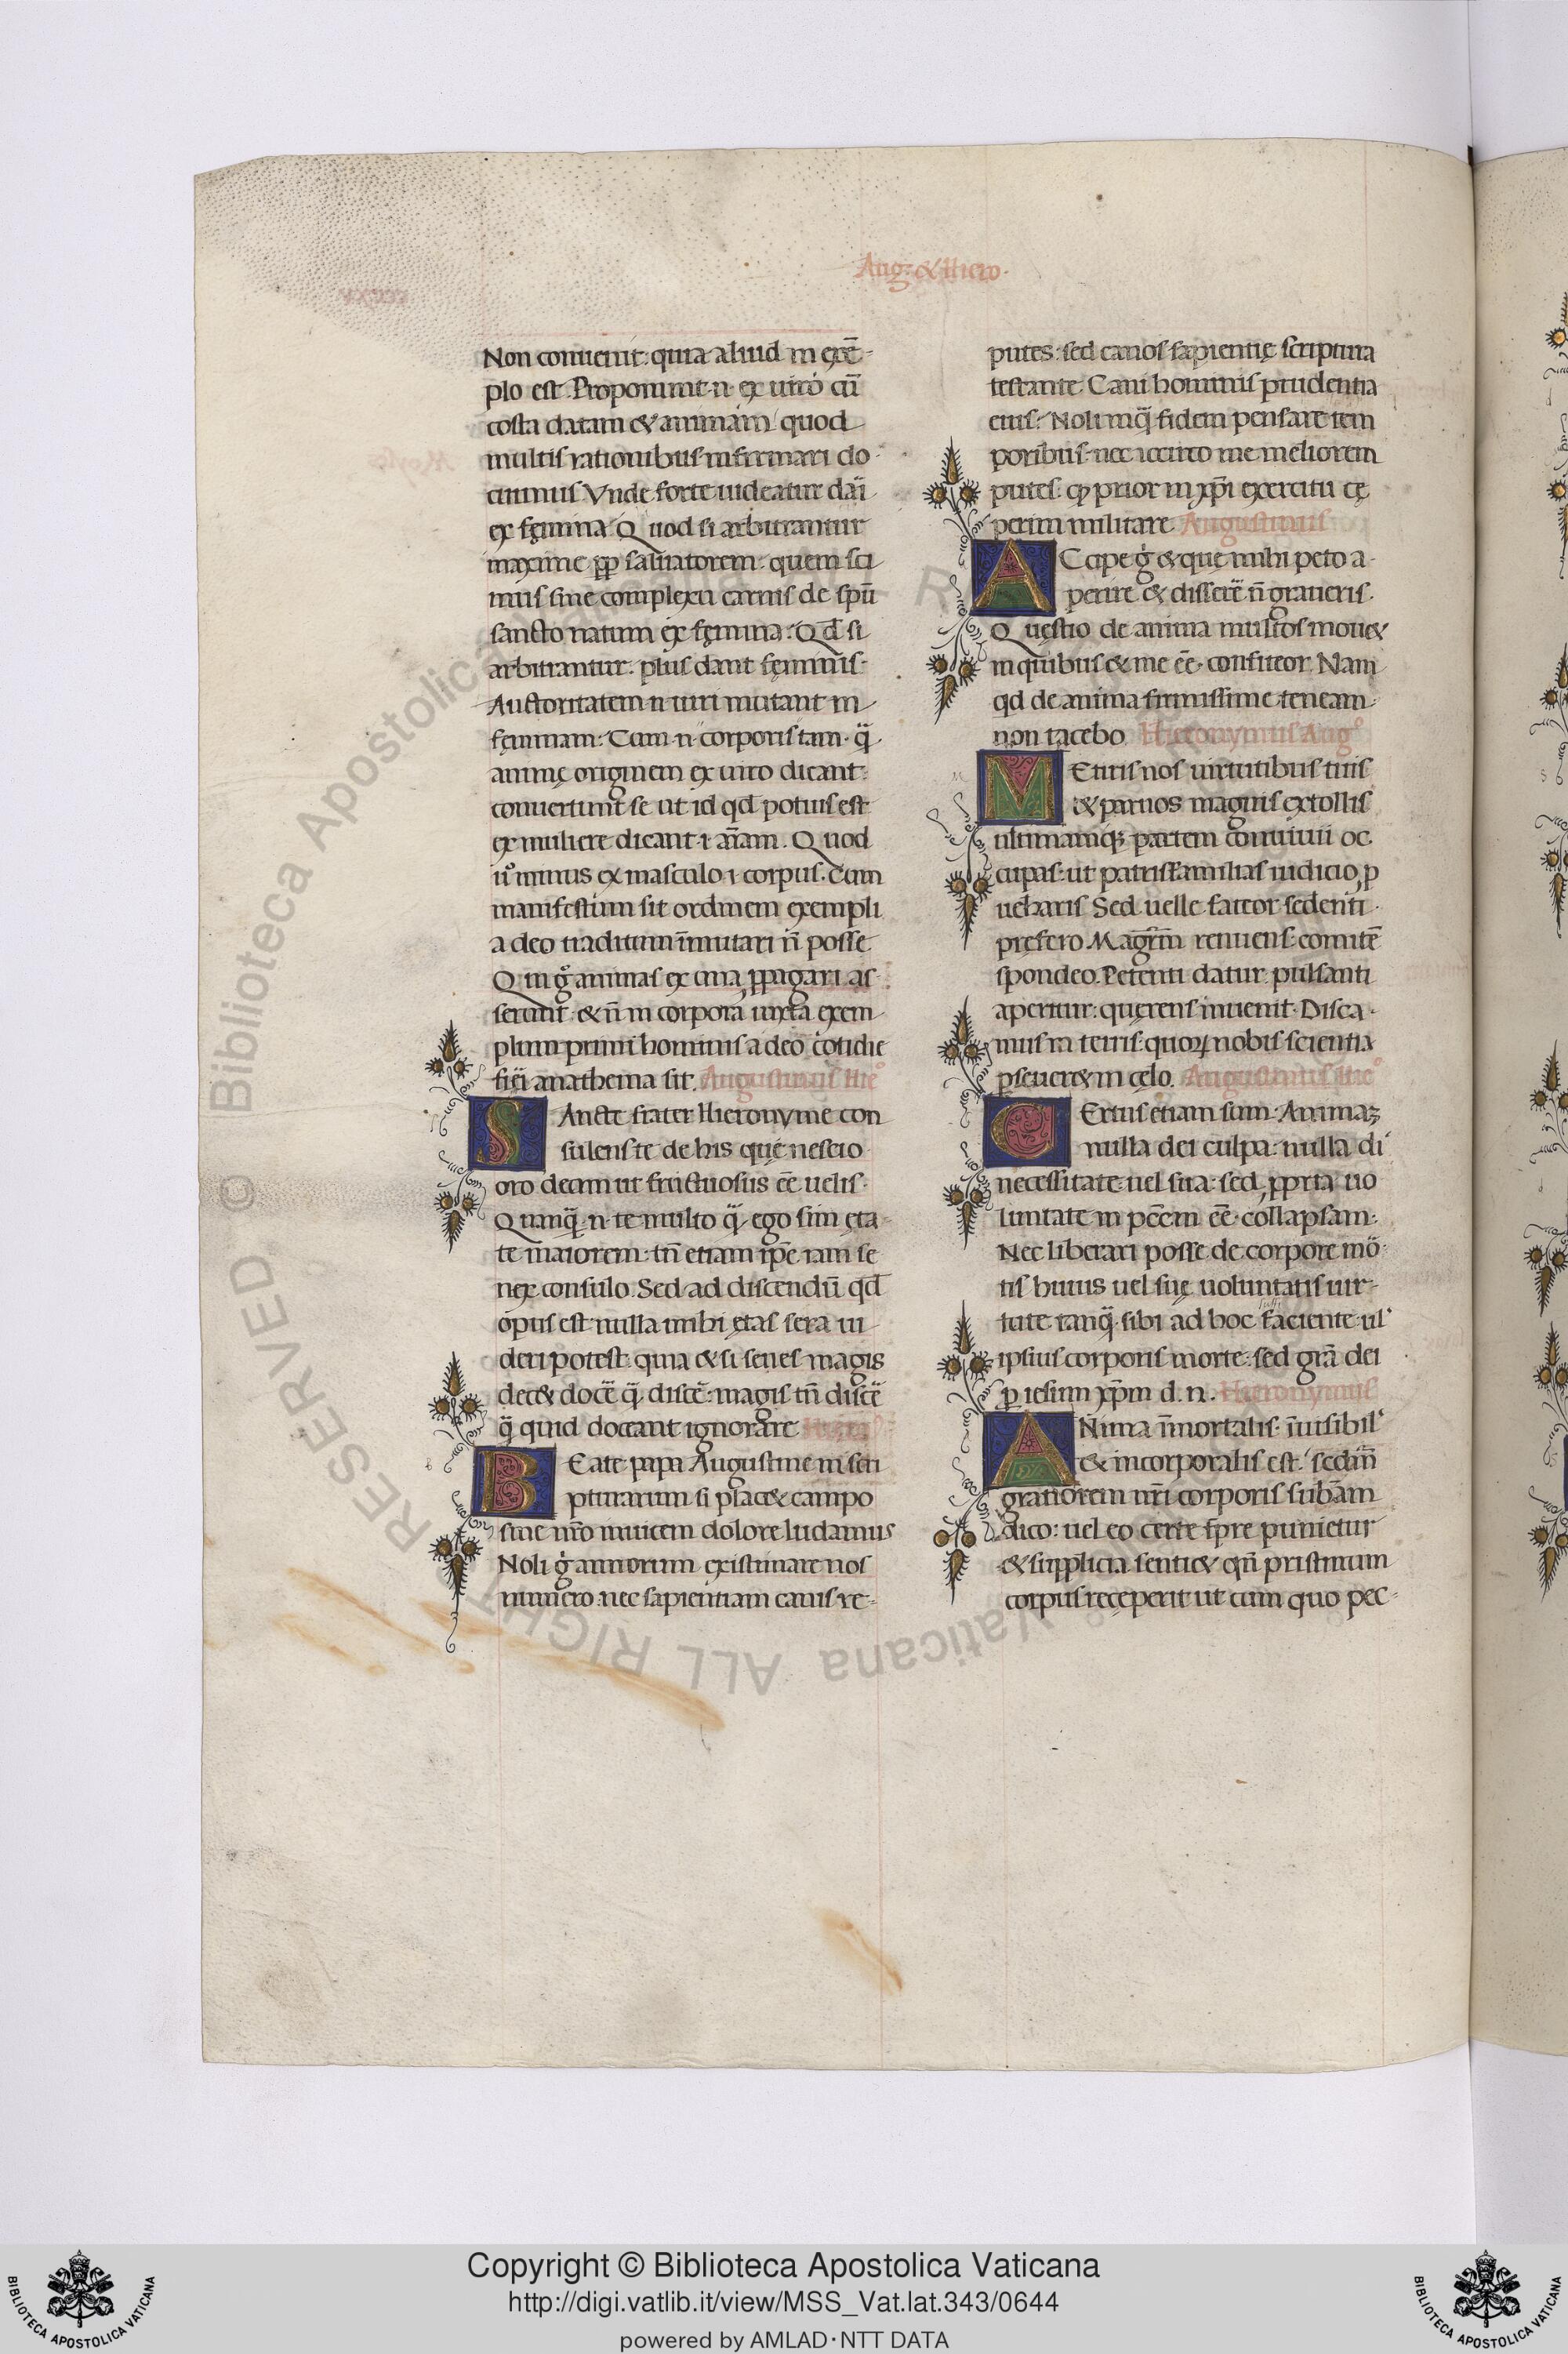 Aug: & Hiero.
Non conuenit: quia aliud in exē-
plo est. Proponunt .n. ex uiro cū
costa datam & animam quod
multis rationibus infirmari do
cuimus Vnde forte uideatur dāi
ex fęmina. Quod si arbitrantur
maxime ꝓp saluatorem. quem sci
mus sine complexu carnis de spū
sancto natum ex fęmina. Qđ si
arbitrantur. plus dant fęminis.
Auctoritatem .n. uiri mutant in
fęminam. Cum .n. corporis tam. q̈
animę originem ex uiro dicant:
conuertunt se ut id qđ potuis est
ex muliere dicant .i. āīam. Quod
u̾ minus ex masculo .i. corpus. Cum
manifestum sit ordinem exempli
a deo traditum īmutari ñ posse
Qui g̊ animas ex una ꝓpagari as
serunt. & ñ in corpora iuxta exem
plum primi hominis a deo cotidie
fiēi anathema sit. Augustinus Hieº
Sancte frater Hieronyme con
sulens te de his quę nescio
oro deum ut fructuosus eē uelis.
Quanq̈ .n. te multo q̈ ego sim ęta
te maiorem. tñ etiam ipē iam se
nex consulo. Sed ad discendū qđ
opus est nulla mihi ętas sera ui
deri potest. quia & si senes magis
dec& docē q̈ discē: magis tñ discē
q̈ quid doceant ignorare
Beate papa Augustine in scri
pturarum si plac& campo
sine nr̄o inuicem dolore ludamus
Noli g̊ annorum existimare nos
numero. nec sapientiam canis re-
putes: sed canos sapientię scriptura
testante. Cani hominis prudentia
eius. Noli inq̈ fidem pensare tem
poribus. nec iccirco me meliorem
putes. ꝙ prior in xp̄i exercitu cę
perim militare Augustinus
Accipe g̊ & que mihi peto a
perire & disserē ñ graueris.
Quęstio de anima multos mou&
in quibus & me eē confiteor. Nam
qđ de anima firmissime teneam
non tacebo. Hieronymus Augº
Metiris nos uirtutibus tuis
& paruos magnis extollis
ultimamq; partem conuiuii oc
cupas: ut patrisfamilias iudicio ꝓ
ueharis Sed uelle fateor sedenti
pręfero. Magr̄m renuens: comitē
spondeo. Petenti datur. pulsanti
aperitur: quęrens inuenit. Disca
mus in terris. quoꝝ nobis scientia
ꝑseuer& in cęlo. Augustinus Hieº
Certus etiam sum. Animaʒ
nulla dei culpa: nulla di
necessitate uel sua: sed ꝓpria uo
luntate in pcc̄m eē collapsam:
Nec liberari posse de corpore mor
tis huius uel suę uoluntatis uir-
tute tanq̈ sibi ad hoc faciente ul'
ipsius corporis morte: sed grā dei
ꝑ iesum xp̄m d. n. Hieronymus
Anima īmortalis. īuisibil'
& incorporalis est. scđm
gratiorem nr̄i corporis subām
dico: uel eo certe punietur
& supplicia senti& qn̄ pristinum
corpus receperit ut cum quo pec-
Biblioteca Apostolica Vaticana ALL RIGHTS RESERVED ©
Copyright © Biblioteca Apostolica Vaticana
http://digi.vatlib.it/view/MSS_Vat.lat.343/0644
powered by AMLAD·NTT DATA
BIBLIOTECA APOSTOLICA VATICANA
BIBLIOTECA APOSTOLICA VATICANA